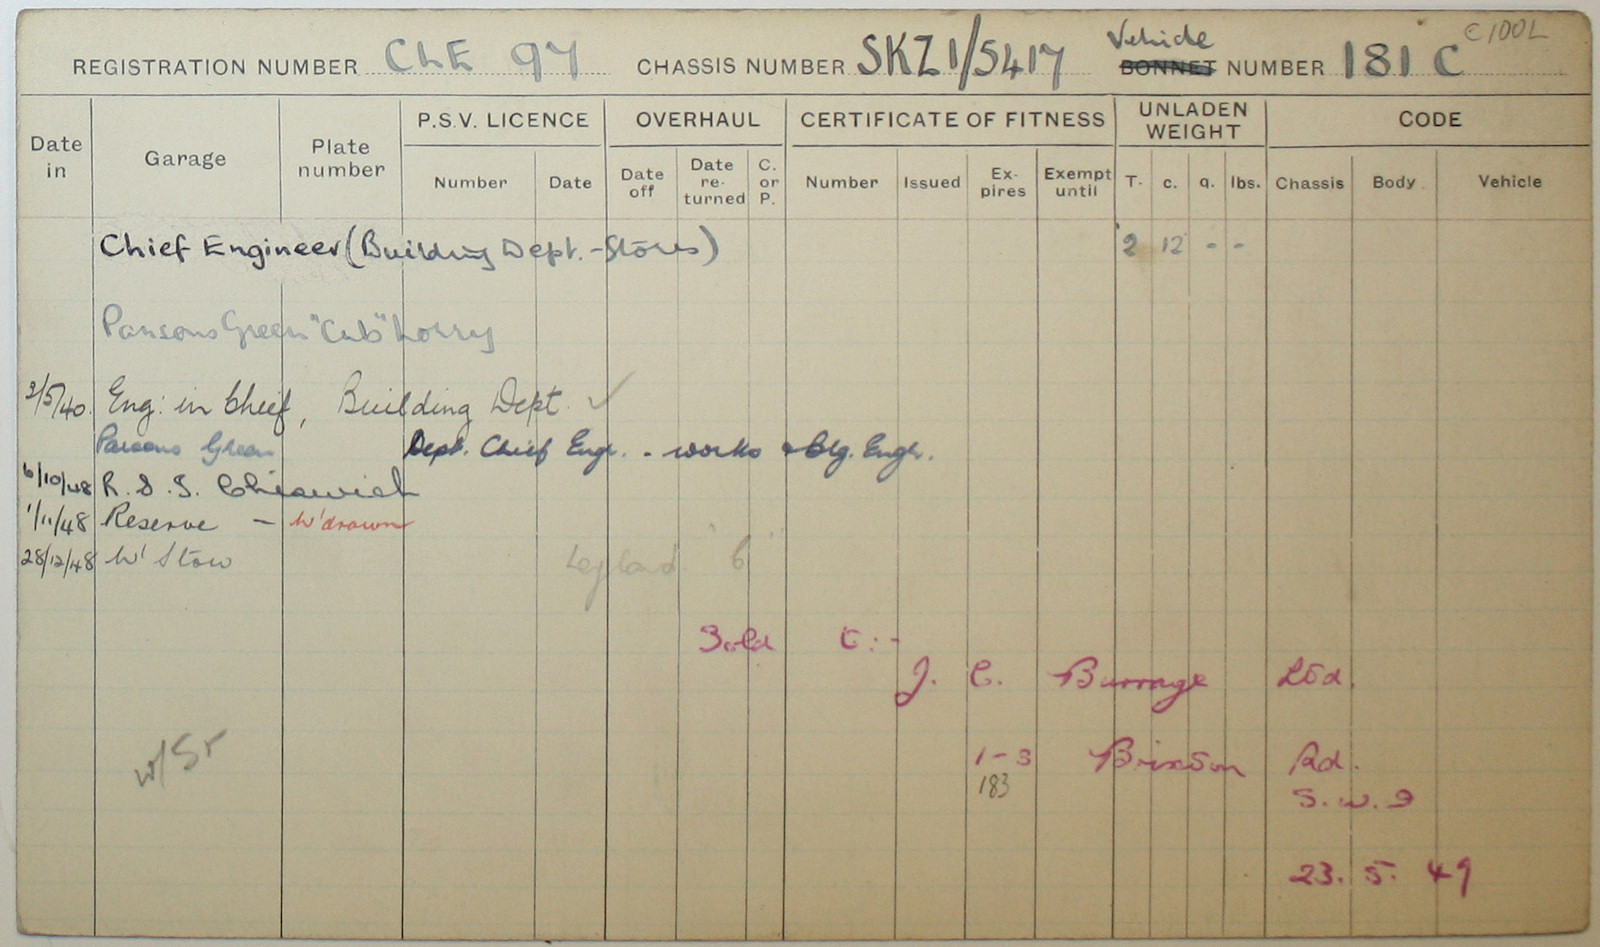 C100L
REGISTRATION NUMBER CLE 97 CHASSIS NUMBER SKZ1/5417 Vehicle BONNET NUMBER 181 C
Date in Garage Plate number P.S.V. LICENCE OVERHAUL CERTIFICATE OF FITNESS UNLADEN WEIGHT CODE
Number Date Date off Date re-turned C. or P. Number Issued Ex-pires Exempt until T. c. q. lbs. Chassis Body Vehicle
Chief Engineer (Building Dept. - Stores) 2 12 - -
Parsons Green "Cub" Lorry
3/5/40. Eng: in Chief, Building Dept. ✓
Parsons Green Dept. Chief Engr. - works & Blg. Engr.
6/10/48 R.S.S. Chiswick
1/11/48 Reserve - W'drawn
28/12/48 W'Stow Leyland "6"
Sold to:-
J. C. Burrage Ltd.
w/St 1-3 Brixton Rd.
183 S.W.9
23. 5. 49